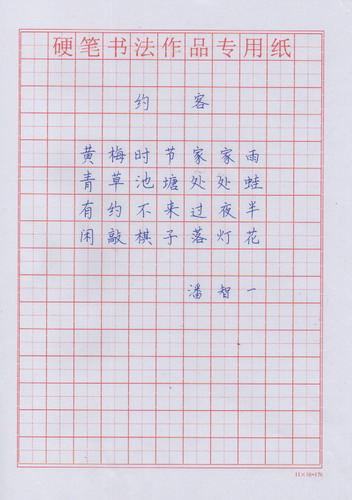 硬笔书法作品专用纸
约客
黄梅时节家家雨
青草池塘处处蛙
有约不来过夜半
闲敲棋子落灯花
潘智一